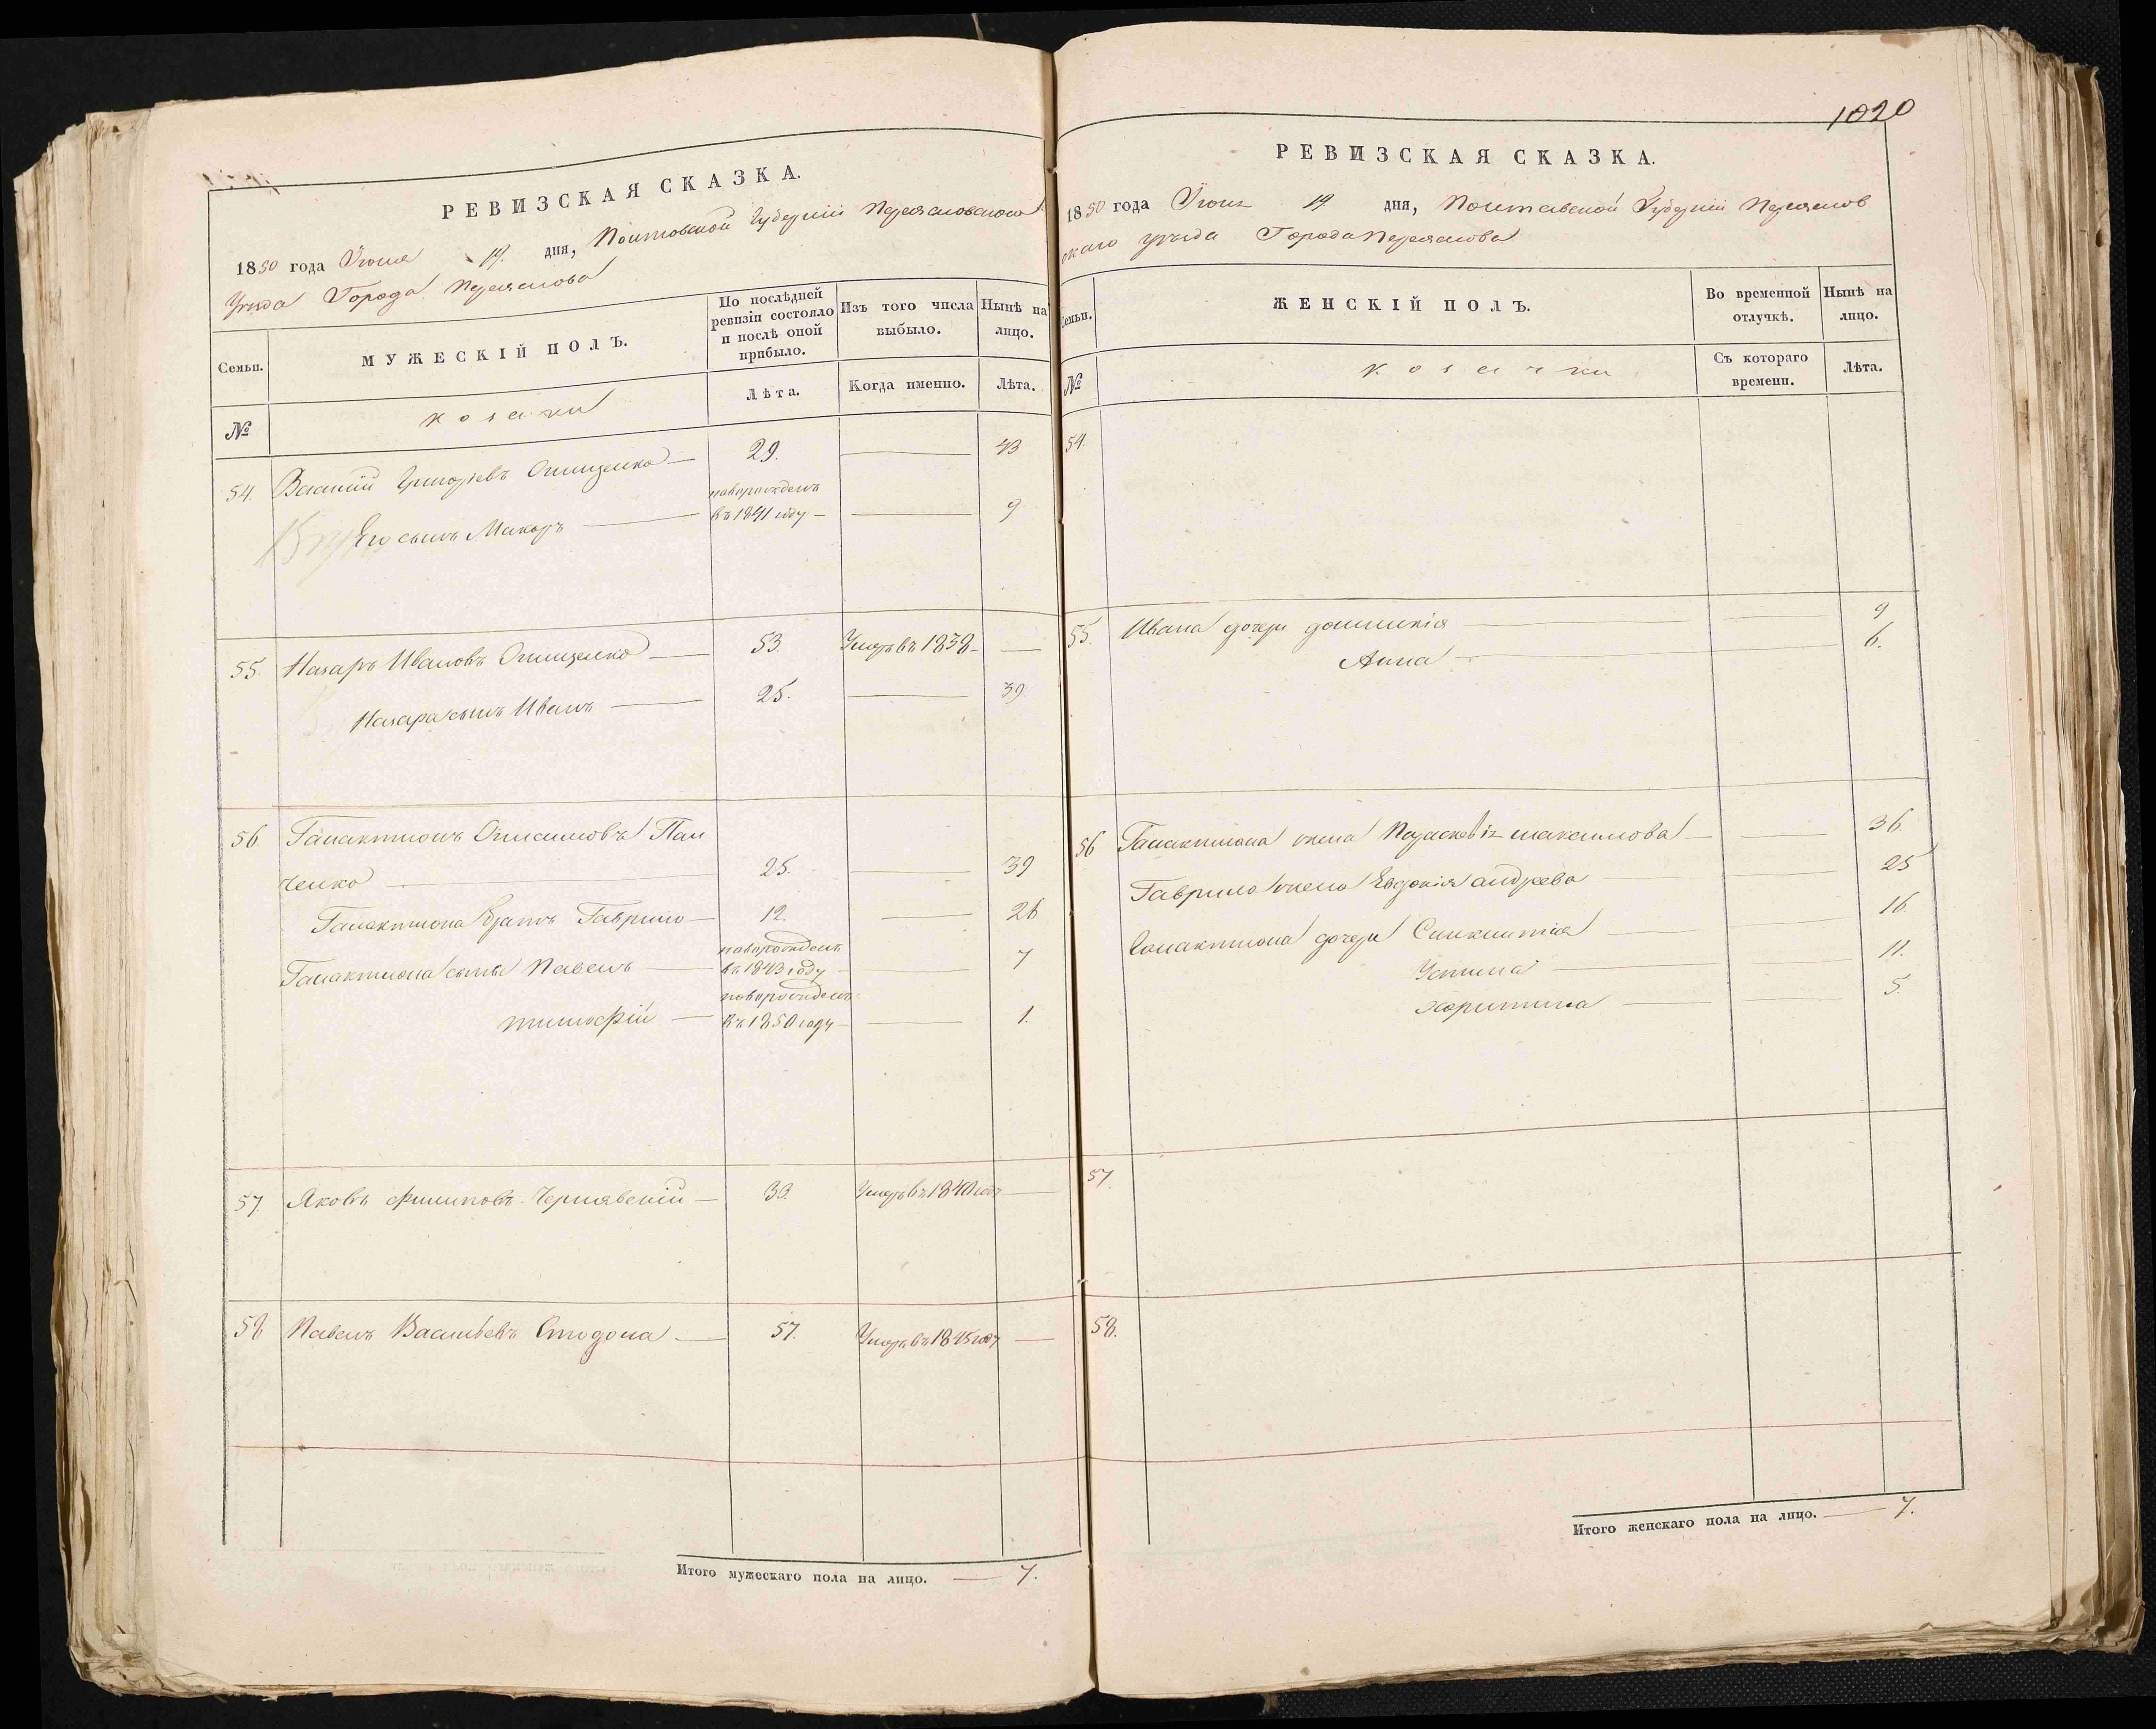 РЕВИЗСКАЯ СКАЗКА.
1850 года Іюня 19. дня, Полтавской Губерніи Переяславского
Уѣзда Города Переяслова
Семьи.
МУЖЕСКІЙ ПОЛЪ.
По послѣдней
ревизіи состояло
и послѣ оной
прибыло.
Изъ того числа
выбыло.
Нынѣ на
лицо.
№
козаки
Лѣта.
Когда именно.
Лѣта.
54. Василій Григорьевъ Онищенко 29. 43
Его сынъ Макаръ новорожденъ
въ 1841 году 9
55. Назаръ Ивановъ Онищенко 53. Умеръ въ 1838
Назара сынъ Иванъ 25. 39
56 Галактионъ Пан
ченко 25. 39
Галактиона братъ Гаврило 12. 26
Галактиона сынъ Павелъ новорожденъ
въ 1843 году 7
Тимофій новорожденъ
въ 1850 году 1.
57. Яковъ Филиповъ Чернявскій 33. Умеръ въ 1840 году
58 Павелъ Васильевъ Стодола 57. Умеръ въ 1845 году
Итого мужескаго пола на лицо. 7.
1020
РЕВИЗСКАЯ СКАЗКА.
1850 года Іюня 19 дня, Полтавской Губерніи Переяслов
скаго уѣзда Города Переяслова
Семьи.
ЖЕНСКІЙ ПОЛЪ.
Во временной
отлучкѣ.
Нынѣ на
лицо.
№
козачки
Съ котораго
времени.
Лѣта.
54.
55. Ивана дочери 9
Анна 6.
56 Галактиона жена Параскевія Максимова 36
Гаврила жена Евдокія Андреева 25
Галактиона дочери Синклитія 16
Устина 11.
Харитина 5.
57.
58.
Итого женскаго пола на лицо. 7.